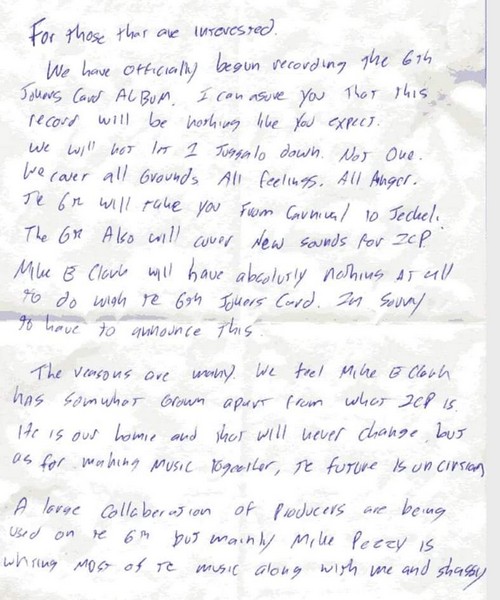 For those that are interested.
We have officially begun recording the 6th
Jokers Card ALBUM. I can asure you that this
record will be nothing like you expect.
We will not let 1 Juggalo down. Not One.
We cover all Grounds All feelings. All Anger.
Te 6th will take you from Carnival to Jeckel.
The 6th Also will cover New sounds for ICP.
Mike E Clark will have absolutly nothing at all
to do with te 6th Jokers Card. Im Sorry
to have to announce this.
The reasons are many. We feel Mike E Clark
has somwhat Grown apart from what ICP is.
He is our homie and that will never change, but
as for making music together, te future is uncirtian
A large Collaberation of Producers are being
used on te 6th but mainly Mike Peezy is
writing Most of te music along with me and shaggy